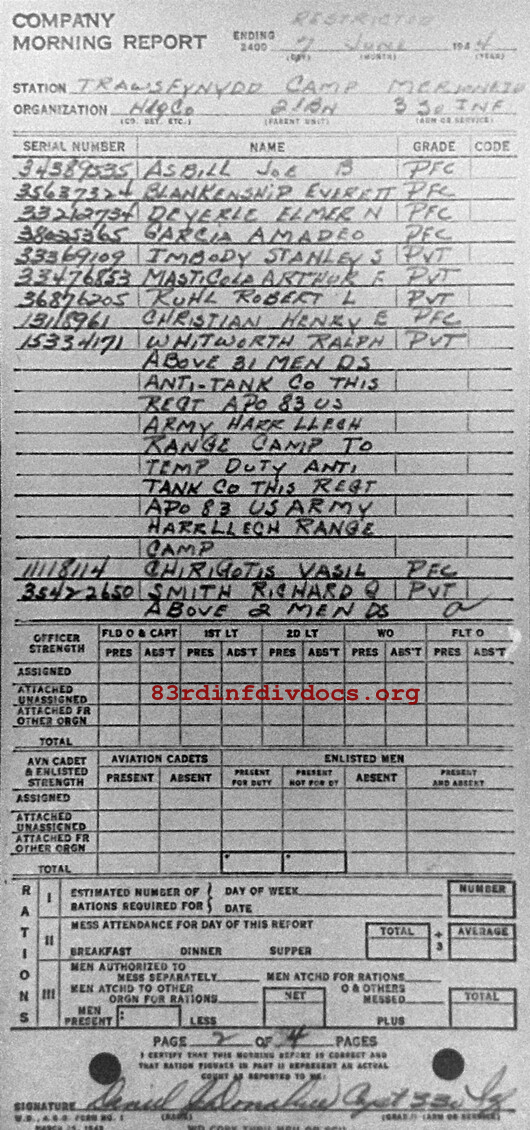 RESTRICTED
COMPANY
MORNING REPORT
ENDING 2400 7 JUNE 1944
(DAY) (MONTH) (YEAR)
STATION TRAWSFYNYDD CAMP MERIONETH
ORGANIZATION HdqCo 2d BN 330 INF
(CO. DET. ETC.) (PARENT UNIT) (ARM OR SERVICE)
SERIAL NUMBER NAME GRADE CODE
34389535 ASBILL JOE B PFC
35637324 BLANKENSHIP EVERETT PFC
33212734 DEYERLE ELMER N PFC
38025365 GARCIA AMADEO PFC
33369109 IMBODY STANLEY S PVT
33476853 MASTICOLA ARTHUR F PVT
36876205 RUHL ROBERT L PVT
13118961 CHRISTIAN HENRY E PFC
15334171 WHITWORTH RALPH PVT
ABOVE 31 MEN DS
ANTI-TANK CO THIS
REGT APO 83 US
ARMY HARRLLECH
RANGE CAMP TO
TEMP DUTY ANTI
TANK CO THIS REGT
APO 83 US ARMY
HARRLLECH RANGE
CAMP
11118114 CHIRIGOTIS VASIL PFC
35422650 SMITH RICHARD Q PVT
ABOVE 2 MEN DS
OFFICER STRENGTH FLD O & CAPT 1ST LT 2D LT WO FLT O
PRES ABS'T PRES ABS'T PRES ABS'T PRES ABS'T PRES ABS'T
ASSIGNED
ATTACHED UNASSIGNED
83rdinfdivdocs.org
ATTACHED FR OTHER ORGN
TOTAL
AVN CADET & ENLISTED STRENGTH AVIATION CADETS ENLISTED MEN
PRESENT ABSENT PRESENT FOR DUTY PRESENT NOT FOR DT ABSENT PRESENT AND ABSENT
ASSIGNED
ATTACHED UNASSIGNED
ATTACHED FR OTHER ORGN
TOTAL
RATIONS
I ESTIMATED NUMBER OF RATIONS REQUIRED FOR { DAY OF WEEK DATE NUMBER
II MESS ATTENDANCE FOR DAY OF THIS REPORT TOTAL ÷ 3 AVERAGE
BREAKFAST DINNER SUPPER
III MEN AUTHORIZED TO MESS SEPARATELY MEN ATCHD FOR RATIONS
MEN ATCHD TO OTHER ORGN FOR RATIONS NET O & OTHERS MESSED TOTAL
MEN PRESENT LESS PLUS
PAGE 2 OF 4 PAGES
I CERTIFY THAT THIS MORNING REPORT IS CORRECT AND
THAT RATION FIGURES IN PART II REPRESENT AN ACTUAL
COUNT AS REPORTED TO ME:
SIGNATURE Daniel Donahue Capt 330 Inf
W.D., A.G.O. FORM NO. 1 (NAME) (GRADE) (ARM OR SERVICE)